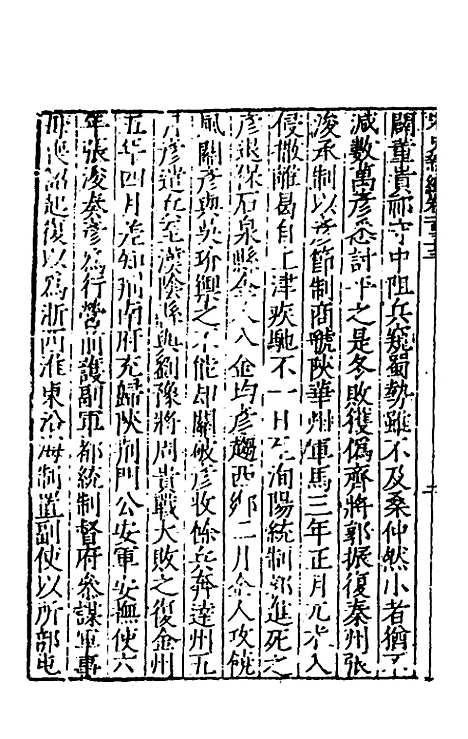 關董貴祁守中阻兵窺蜀勢雖不及桑仲然小者猶不
減數萬彥悉討平之是冬敗獲僞齊將郭振復秦州張
浚承制以彥節制商虢陝華州軍馬三年正月兀朮入
侵撒離曷自上津疾馳不一日至洵陽統制郭進死之
彥退保石泉縣金人入金均彥趨西鄉二月金人攻饒
風關彥與吳玠禦之不能却關破彥收餘兵奔達州五
月彥遣兵至漢陰縣與劉豫將周貴戰大敗之復金州
五年四月差知荆南府充歸陝荆門公安軍安撫使六
年張浚奏彥爲行營前護副軍都統制督府參謀軍事
母喪詔起復以爲浙西淮東沿海制置副使以所部屯